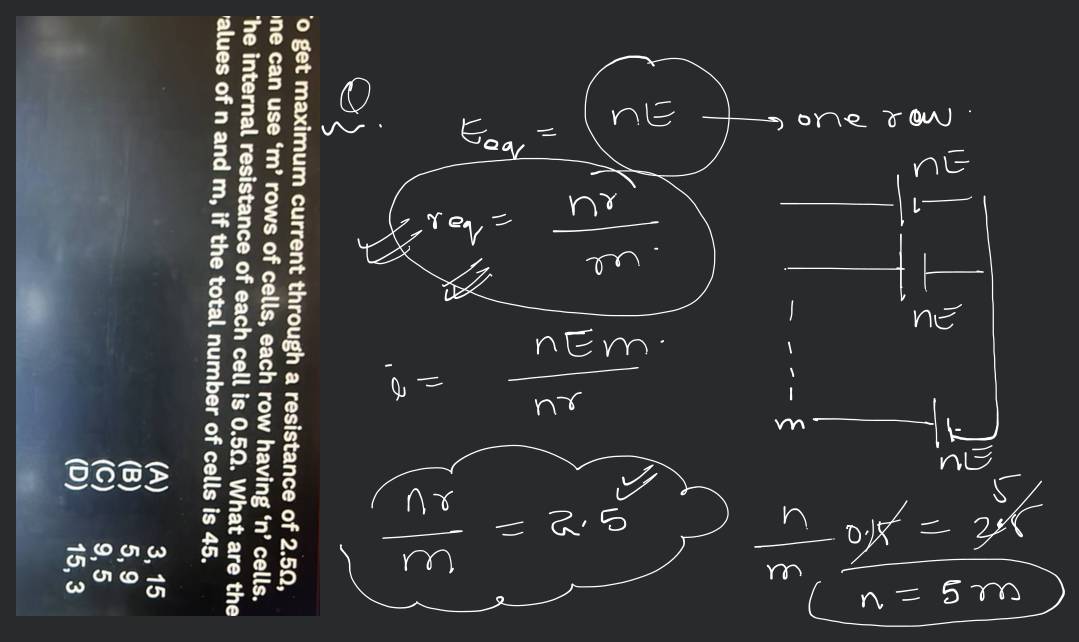 'o get maximum current through a resistance of 2.5Ω,
ne can use 'm' rows of cells, each row having 'n' cells.
he internal resistance of each cell is 0.5Ω. What are the
alues of n and m, if the total number of cells is 45.
(A) 3, 15
(B) 5, 9
(C) 9, 5
(D) 15, 3
Eeq = nE → one row.
req = nr / m
i = nEm / nr
nr / m = 2.5
nE
nE
m
nE
n / m 0.5 = 2.5 5
n = 5 m